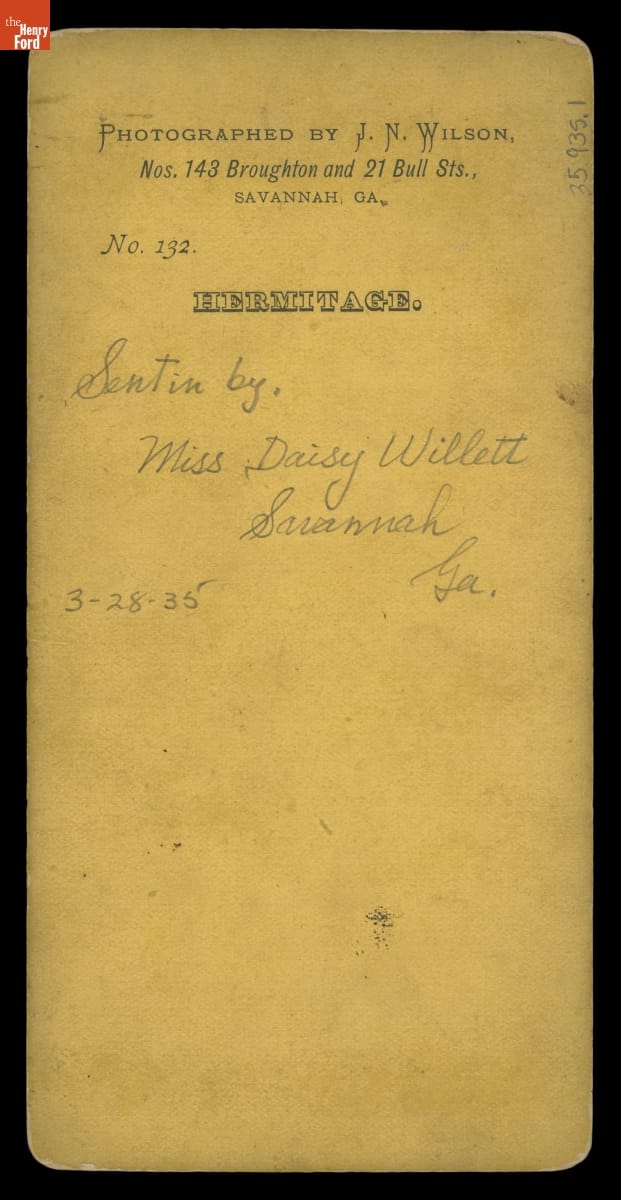 the
Henry
Ford
PHOTOGRAPHED BY J. N. WILSON,
Nos. 143 Broughton and 21 Bull Sts.,
SAVANNAH, GA.
No. 132.
HERMITAGE.
Sent in by.
Miss Daisy Willett
Savannah
Ga.
3-28-35
35.935.1